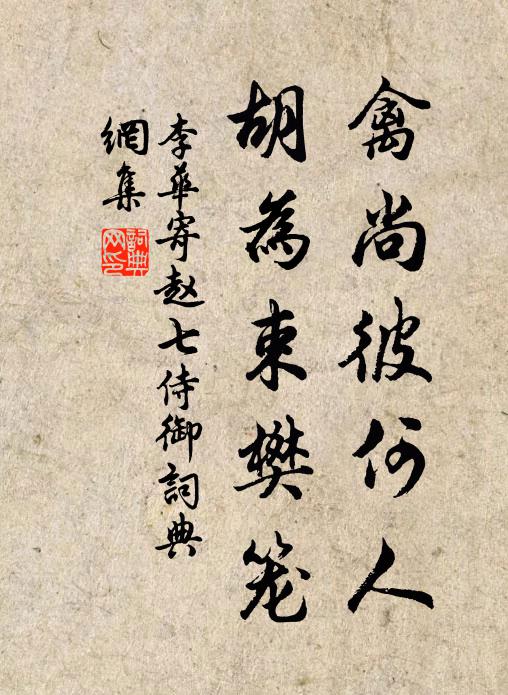 禽尚彼何人
胡為束樊笼
李華寄赵七侍御詞典
網集
詞典
网印